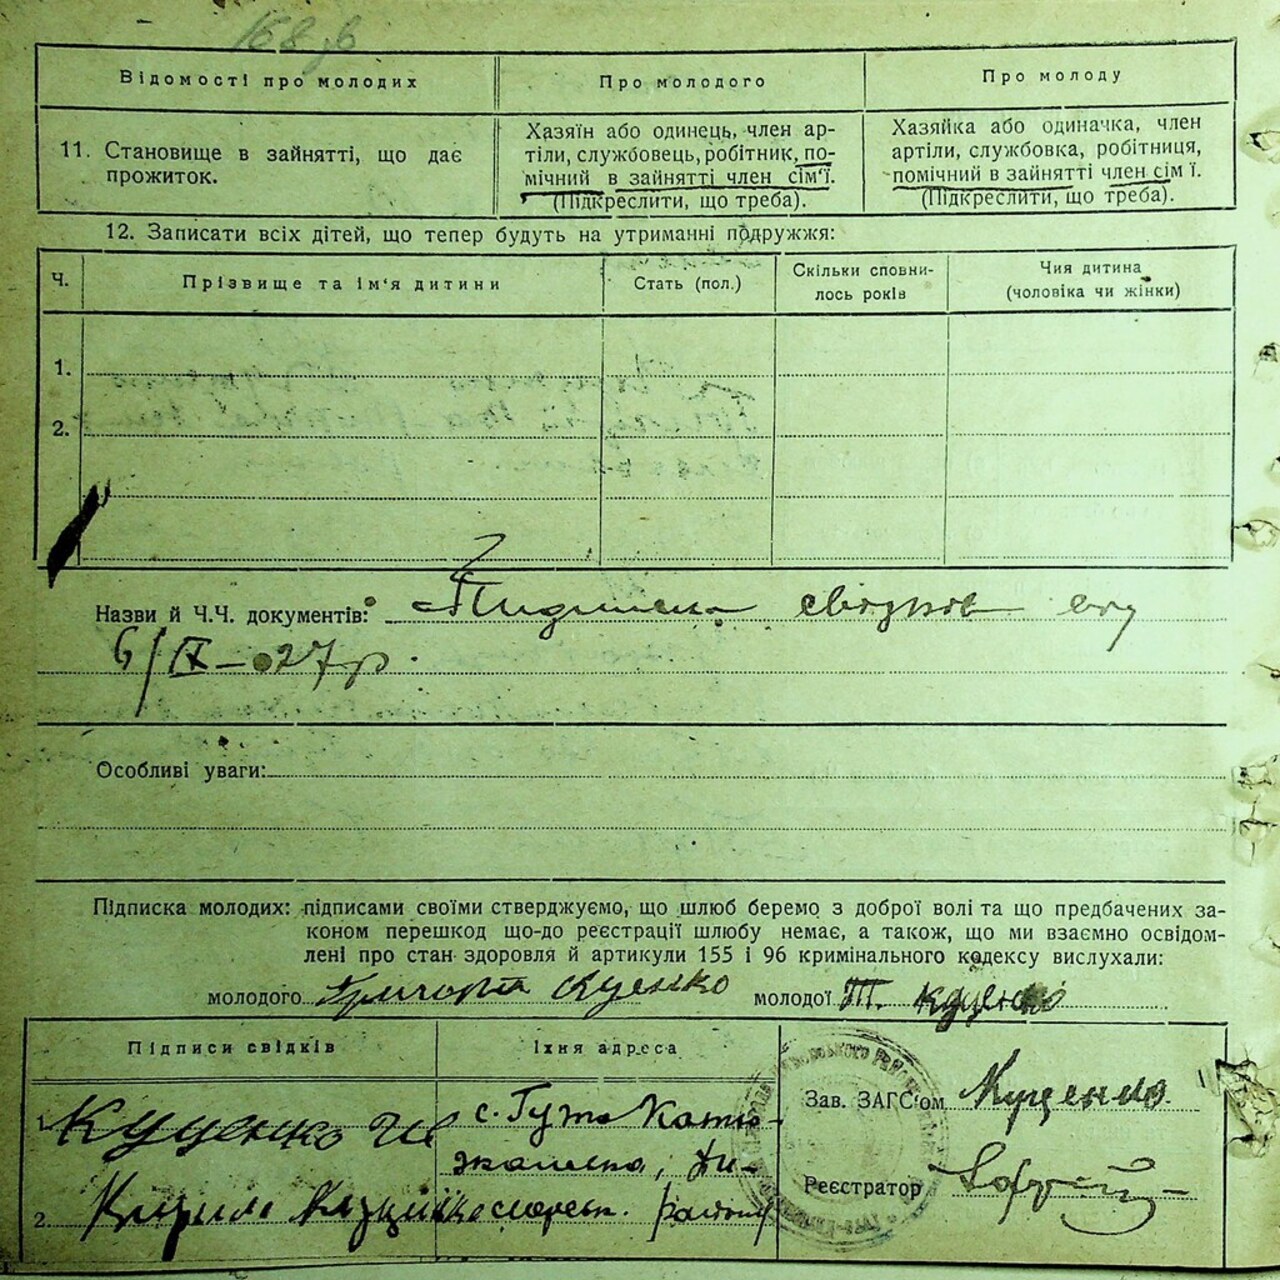 Відомості про молодих
Про молодого
Про молоду
11. Становище в зайнятті, що дає
прожиток.
Хазяїн або одинець, член ар-
тіли, службовець, робітник, по-
мічний в зайнятті член сім'ї.
(Підкреслити, що треба).
Хазяйка або одиначка, член
артіли, службовка, робітниця,
помічний в зайнятті член сім ї.
(Підкреслити, що треба).
12. Записати всіх дітей, що тепер будуть на утриманні подружжя:
Ч.
Прізвище та ім'я дитини
Стать (пол.)
Скільки сповни-
лось років
Чия дитина
(чоловіка чи жінки)
1.
2.
Назви й Ч.Ч. документів:
6/IX-027р.
Особливі уваги:
Підписка молодих: підписами своїми стверджуємо, що шлюб беремо з доброї волі та що предбачених за-
коном перешкод що-до реєстрації шлюбу немає, а також, що ми взаємно освідом-
лені про стан здоровля й артикули 155 і 96 кримінального кодексу вислухали:
молодого Куценко молодої Т. Куценко
Підписи свідків
Їхня адреса
1. Куценко
с. Гута Катю-
жанська, Ди-
2. Кирило
району
Зав. ЗАГС'ом Куценко
Реєстратор